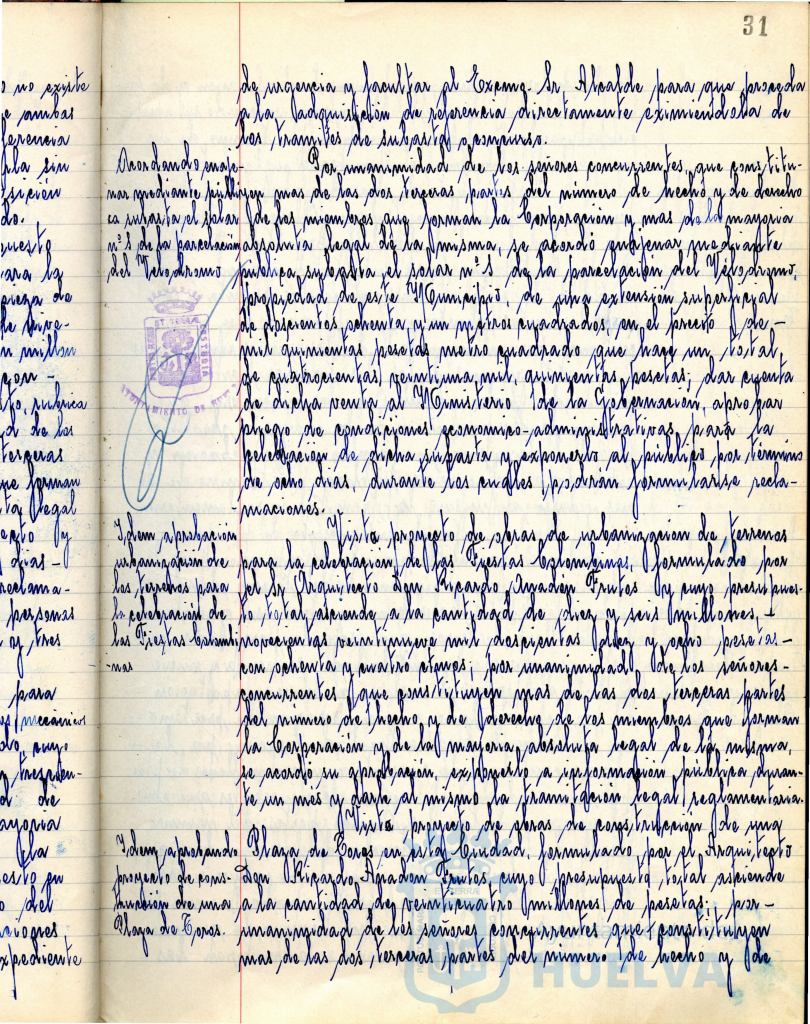 31
de urgencia y facultar al Excmo. Sr. Alcalde para que proceda
a la adquisición de referencia directamente eximiendola de
los tramites de subasta o concurso.
Acordando enaje-
nar mediante públi-
ca subasta el solar
nº 8 de la parcelación
del Velodromo
Por unanimidad de los señores concurrentes, que constitu-
yen mas de las dos terceras partes del número de hecho y de derecho
de los miembros que forman la Corporación y mas de la mayoria
absoluta legal de la misma, se acordó enajenar mediante
pública subasta el solar nº 8 de la parcelación del Velodromo,
propiedad de este Municipio, de una extensión superficial
de doscientos ochenta y un metros cuadrados, en el precio de-
mil quinientas pesetas metro cuadrado que hace un total
de cuatrocientas veintiuna mil, quinientas pesetas; dar cuenta
de dicha venta al Ministerio de la Gobernación, aprobar
pliego de condiciones economico-administrativas para la
celebración de dicha subasta y exponerlo al público por término
de ocho dias, durante los cuales podrán formularse recla-
maciones.
Idem aprobación
urbanización de
los terrenos para
la celebración de
las Fiestas Colombi
-nas
Visto proyecto de obras de urbanización de terrenos
para la celebración de las Fiestas Colombinas, formulado por
el Sr Arquitecto Don Ricardo Anadón Frutos y cuyo presupues-
to total asciende a la cantidad de diez y seis millones,-
novecientas veintinueve mil doscientas diez y ocho pesetas-
con ochenta y cuatro ctmos; por unanimidad de los señores-
concurrentes que constituyen mas de las dos terceras partes
del número de hecho y de derecho de los miembros que forman
la Corporación y de la mayoria absoluta legal de la misma,
se acordó su aprobación, exponerlo a información pública duran-
te un mes y darle al mismo la tramitación legal reglamentaria.
Idem aprobando
proyecto de cons-
trucción de una
Plaza de Toros.
Visto proyecto de obras de construcción de una
Plaza de Toros en esta Ciudad, formulado por el Arquitecto
don Ricardo Anadon Frutos, cuyo presupuesto total asciende
a la cantidad de veinticuatro millones de pesetas; por-
unanimidad de los señores concurrentes que constituyen
mas de las dos terceras partes del número de hecho y de
HUELVA